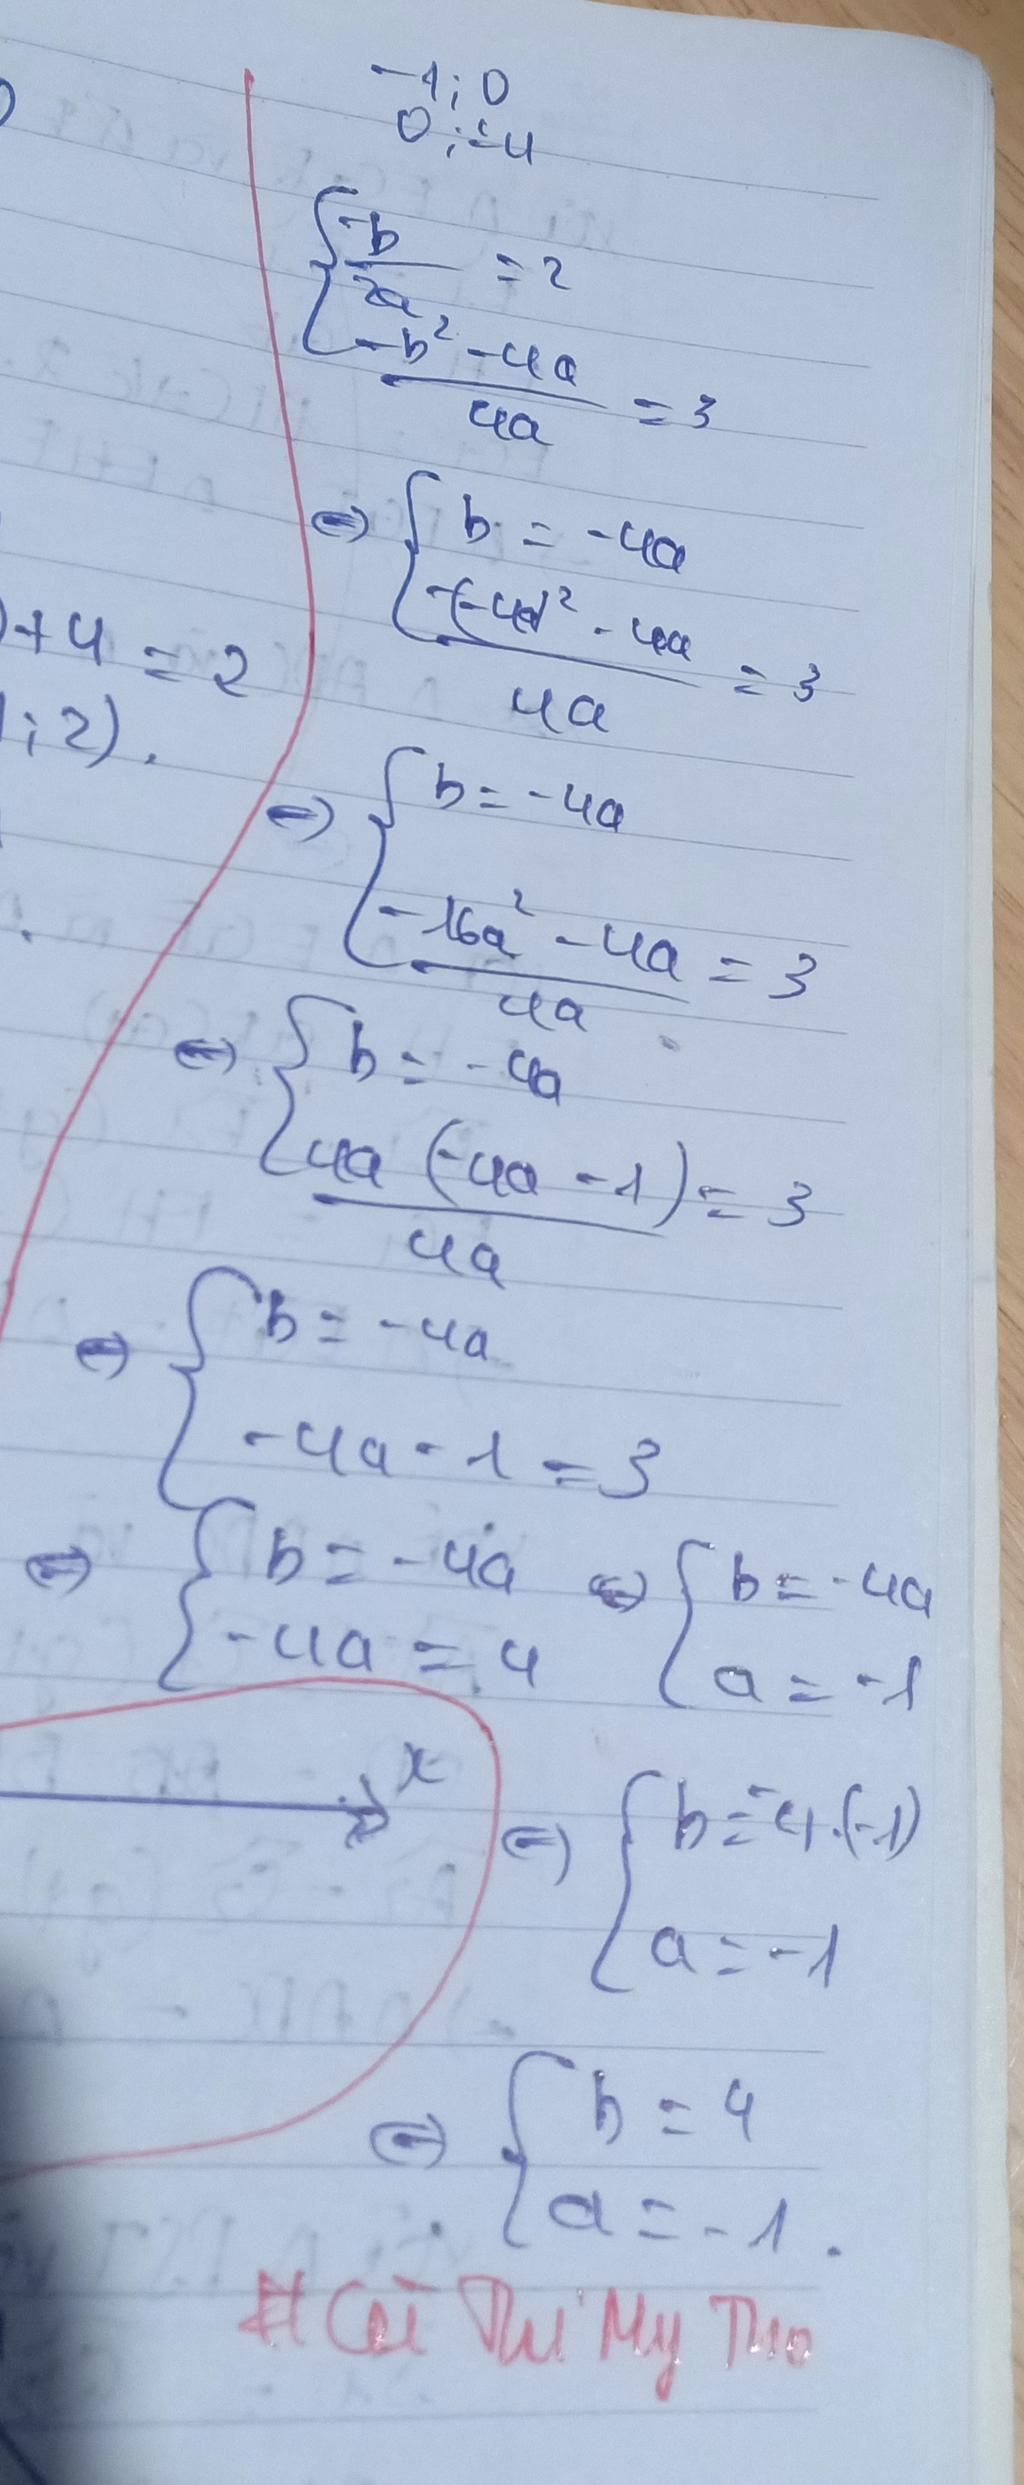 -1; 0
0; -4
{ -b/2a = 2
{ -b² - 4a/4a = 3
⇔ { b = -4a
{ -(-4a)² - 4a/4a = 3
)+4 = 2
1; 2).
⇔ { b = -4a
{ -16a² - 4a/4a = 3
⇔ { b = -4a
{ 4a (-4a - 1)/4a = 3
⇔ { b = -4a
{ -4a - 1 = 3
⇔ { b = -4a ⇔ { b = -4a
{ -4a = 4 { a = -1
x
⇔ { b = -4.(-1)
{ a = -1
⇔ { b = 4
{ a = -1.